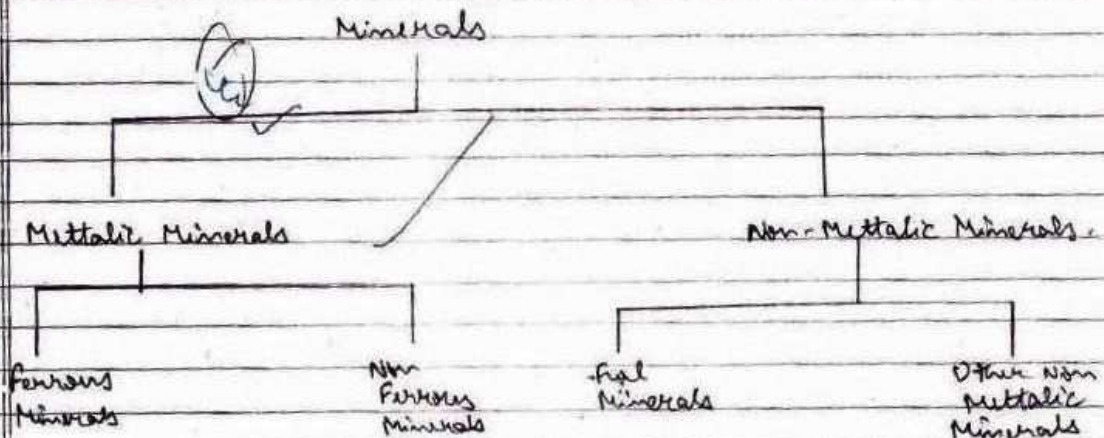 Minerals
Mettalic Minerals
Non-Mettalic Minerals.
Ferrous
Minerals
Non
Ferrous
Minerals
Fuel
Minerals
Other Non
Mettalic
Minerals